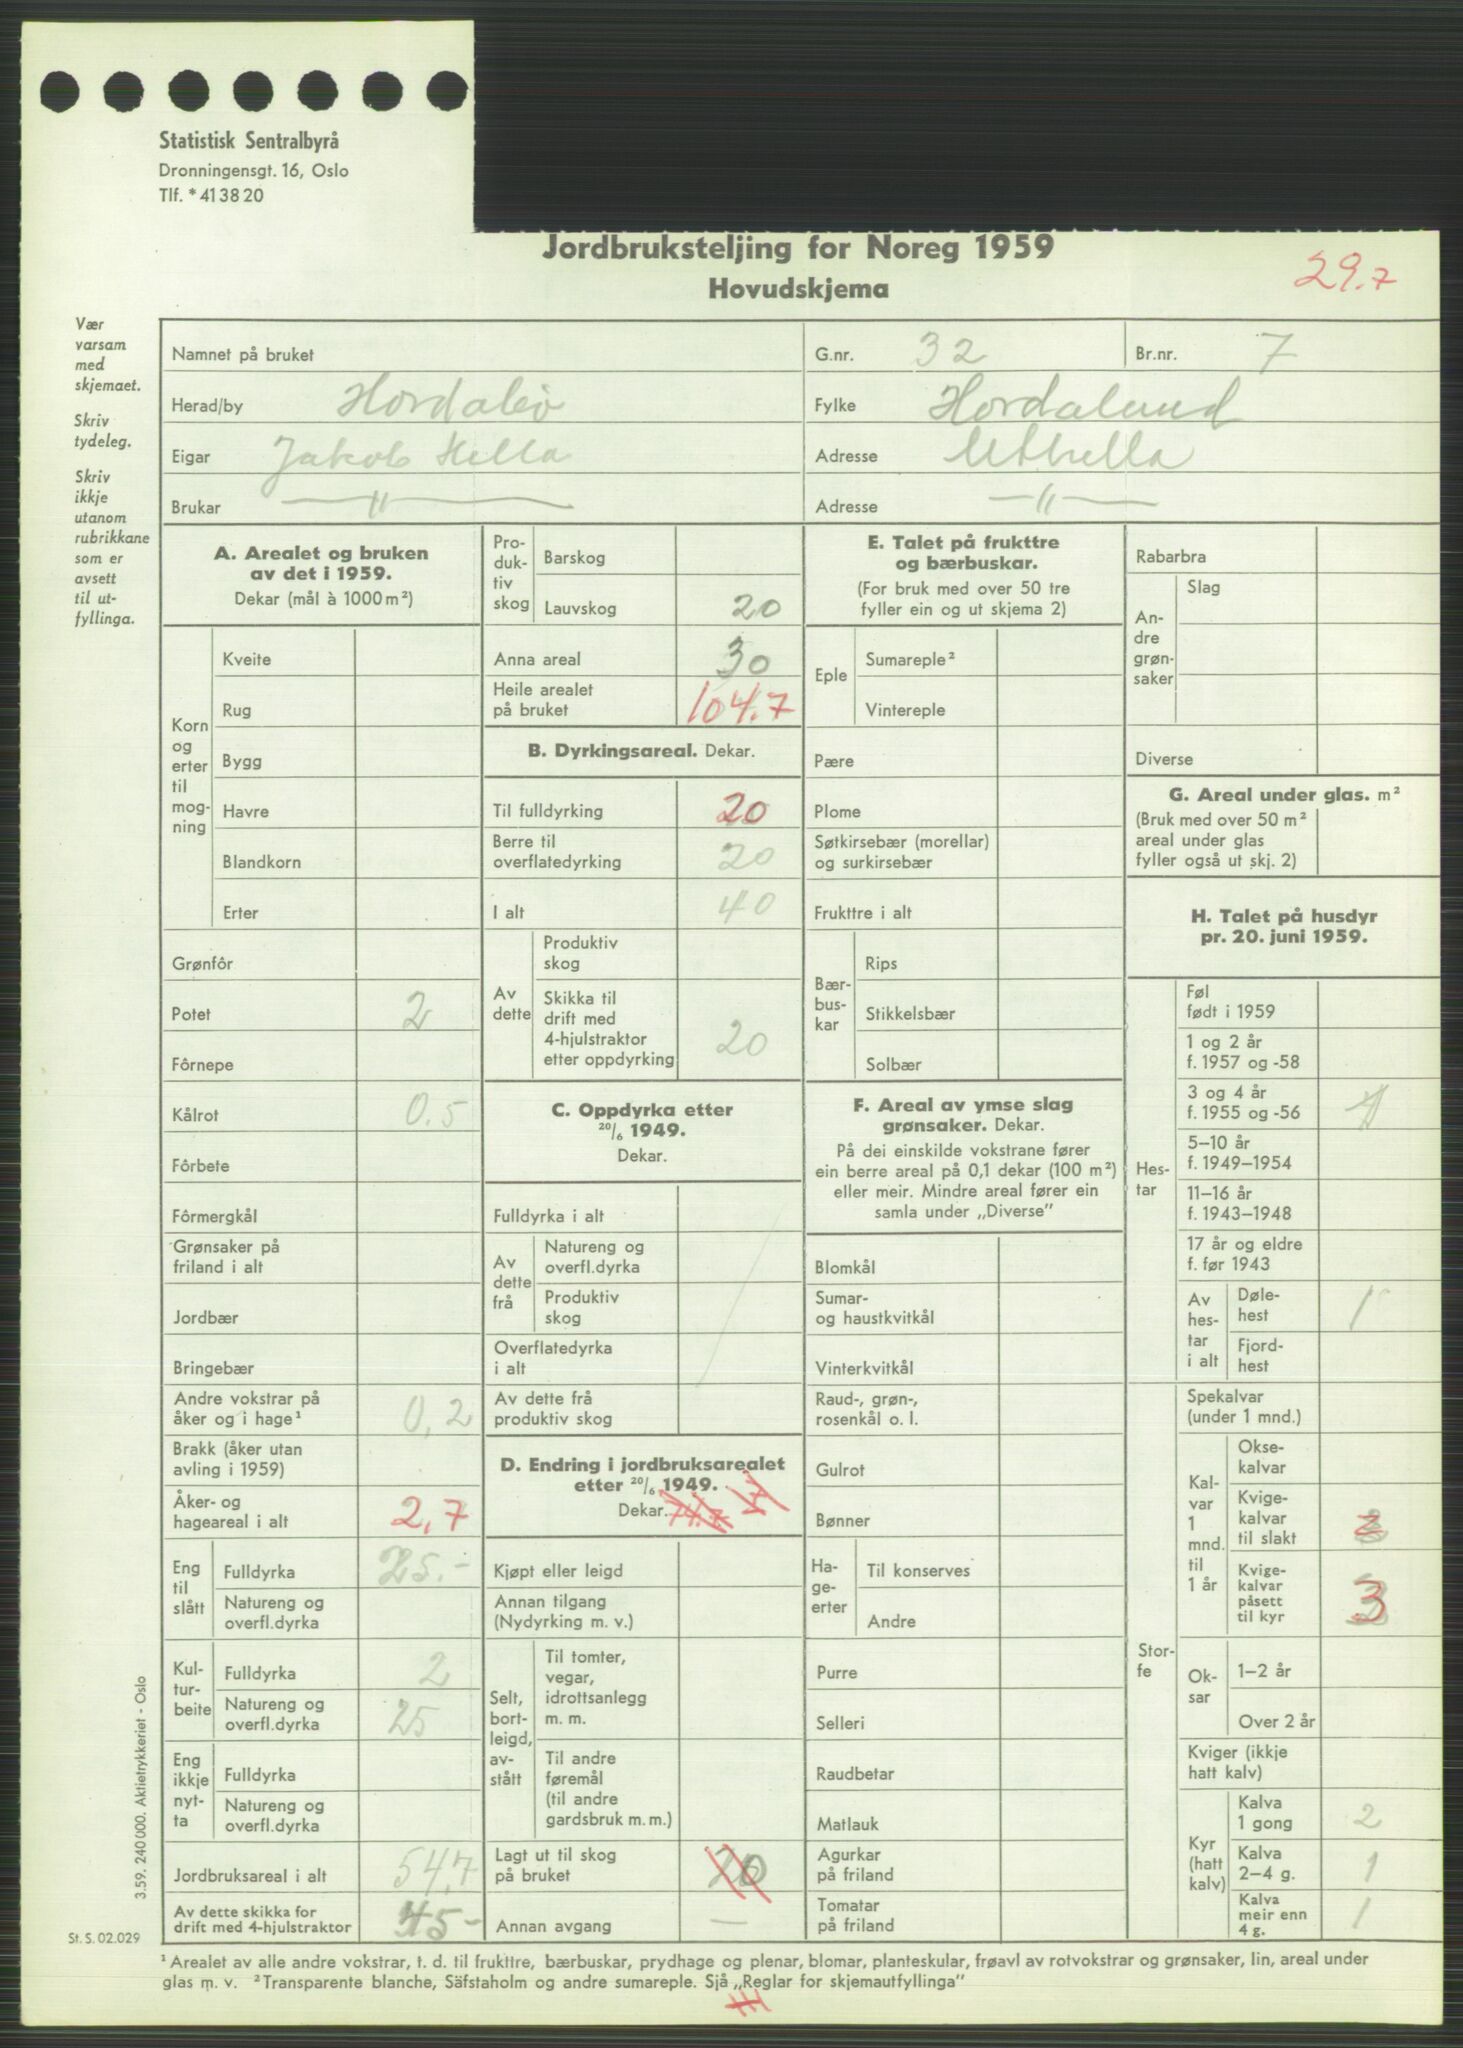 Statistisk Sentralbyrå
Dronningensgt. 16, Oslo
Tlf. *41 38 20
Jordbruksteljing for Noreg 1959
Hovudskjema
29.7
Vær
varsam
med
skjemaet.
Skriv
tydeleg.
Skriv
ikkje
utanom
rubrikkane
som er
avsett
til ut-
fyllinga.
Namnet på bruket
G.nr. 32
Br.nr. 7
Herad/by Hordabø
Fylke Hordaland
Eigar Jakob Hella
Adresse Uthella
Brukar — " —
Adresse — " —
A. Arealet og bruken
av det i 1959.
Dekar (mål à 1000 m²)
Korn
og
erter
til
mog-
ning
Kveite
Rug
Bygg
Havre
Blandkorn
Erter
Grønfôr
Potet 2
Fôrnepe
Kålrot 0.5
Fôrbete
Fôrmergkål
Grønsaker på
friland i alt
Jordbær
Bringebær
Andre vokstrar på
åker og i hage¹ 0,2
Brakk (åker utan
avling i 1959)
Åker- og
hageareal i alt 2,7
Eng
til
slått
Fulldyrka 25.-
Natureng og
overfl.dyrka
Kul-
tur-
beite
Fulldyrka 2
Natureng og
overfl.dyrka 25
Eng
ikkje
nyt-
ta
Fulldyrka
Natureng og
overfl.dyrka
Jordbruksareal i alt 54,7
Av dette skikka for
drift med 4-hjulstraktor 45-
Pro-
duk-
tiv
skog
Barskog
Lauvskog 20
Anna areal 30
Heile arealet
på bruket 104.7
B. Dyrkingsareal. Dekar.
Til fulldyrking 20
Berre til
overflatedyrking 20
I alt 40
Av
dette
Produktiv
skog
Skikka til
drift med
4-hjulstraktor
etter oppdyrking 20
C. Oppdyrka etter
20/6 1949.
Dekar.
Fulldyrka i alt
Av
dette
frå
Natureng og
overfl.dyrka
Produktiv
skog
Overflatedyrka
i alt
Av dette frå
produktiv skog
D. Endring i jordbruksarealet
etter 20/6 1949.
Dekar.
Kjøpt eller leigd
Annan tilgang
(Nydyrking m. v.)
Selt,
bort-
leigd,
av-
stått
Til tomter,
vegar,
idrottsanlegg
m. m.
Til andre
føremål
(til andre
gardsbruk m. m.)
Lagt ut til skog
på bruket 20
Annan avgang —
E. Talet på frukttre
og bærbuskar.
(For bruk med over 50 tre
fyller ein og ut skjema 2)
Eple
Sumareple²
Vintereple
Pære
Plome
Søtkirsebær (morellar)
og surkirsebær
Frukttre i alt
Bær-
bus-
kar
Rips
Stikkelsbær
Solbær
F. Areal av ymse slag
grønsaker. Dekar.
På dei einskilde vokstrane fører
ein berre areal på 0,1 dekar (100 m²)
eller meir. Mindre areal fører ein
samla under „Diverse”
Blomkål
Sumar-
og haustkvitkål
Vinterkvitkål
Raud-, grøn-,
rosenkål o. l.
Gulrot
Bønner
Ha-
ge-
erter
Til konserves
Andre
Purre
Selleri
Raudbetar
Matlauk
Agurkar
på friland
Tomatar
på friland
Rabarbra
An-
dre
grøn-
saker
Slag
Diverse
G. Areal under glas. m²
(Bruk med over 50 m²
areal under glas
fyller også ut skj. 2)
H. Talet på husdyr
pr. 20. juni 1959.
Hes-
tar
Føl
født i 1959
1 og 2 år
f. 1957 og -58
3 og 4 år
f. 1955 og -56 1
5–10 år
f. 1949–1954
11–16 år
f. 1943–1948
17 år og eldre
f. før 1943
Av
hes-
tar
i alt
Døle-
hest 1
Fjord-
hest
Stor-
fe
Spekalvar
(under 1 mnd.)
Kal-
var
1
mnd.
til
1 år
Okse-
kalvar
Kvige-
kalvar
til slakt
Kvige-
kalvar
påsett
til kyr 3
Ok-
sar
1–2 år
Over 2 år
Kviger (ikkje
hatt kalv)
Kyr
(hatt
kalv)
Kalva
1 gong 2
Kalva
2–4 g. 1
Kalva
meir enn
4 g. 1
3.59. 240 000. Aktietrykkeriet - Oslo
St. S. 02.029
¹ Arealet av alle andre vokstrar, t. d. til frukttre, bærbuskar, prydhage og plenar, blomar, planteskular, frøavl av rotvokstrar og grønsaker, lin, areal under
glas m. v. ² Transparente blanche, Säfstaholm og andre sumareple. Sjå „Reglar for skjemautfyllinga”